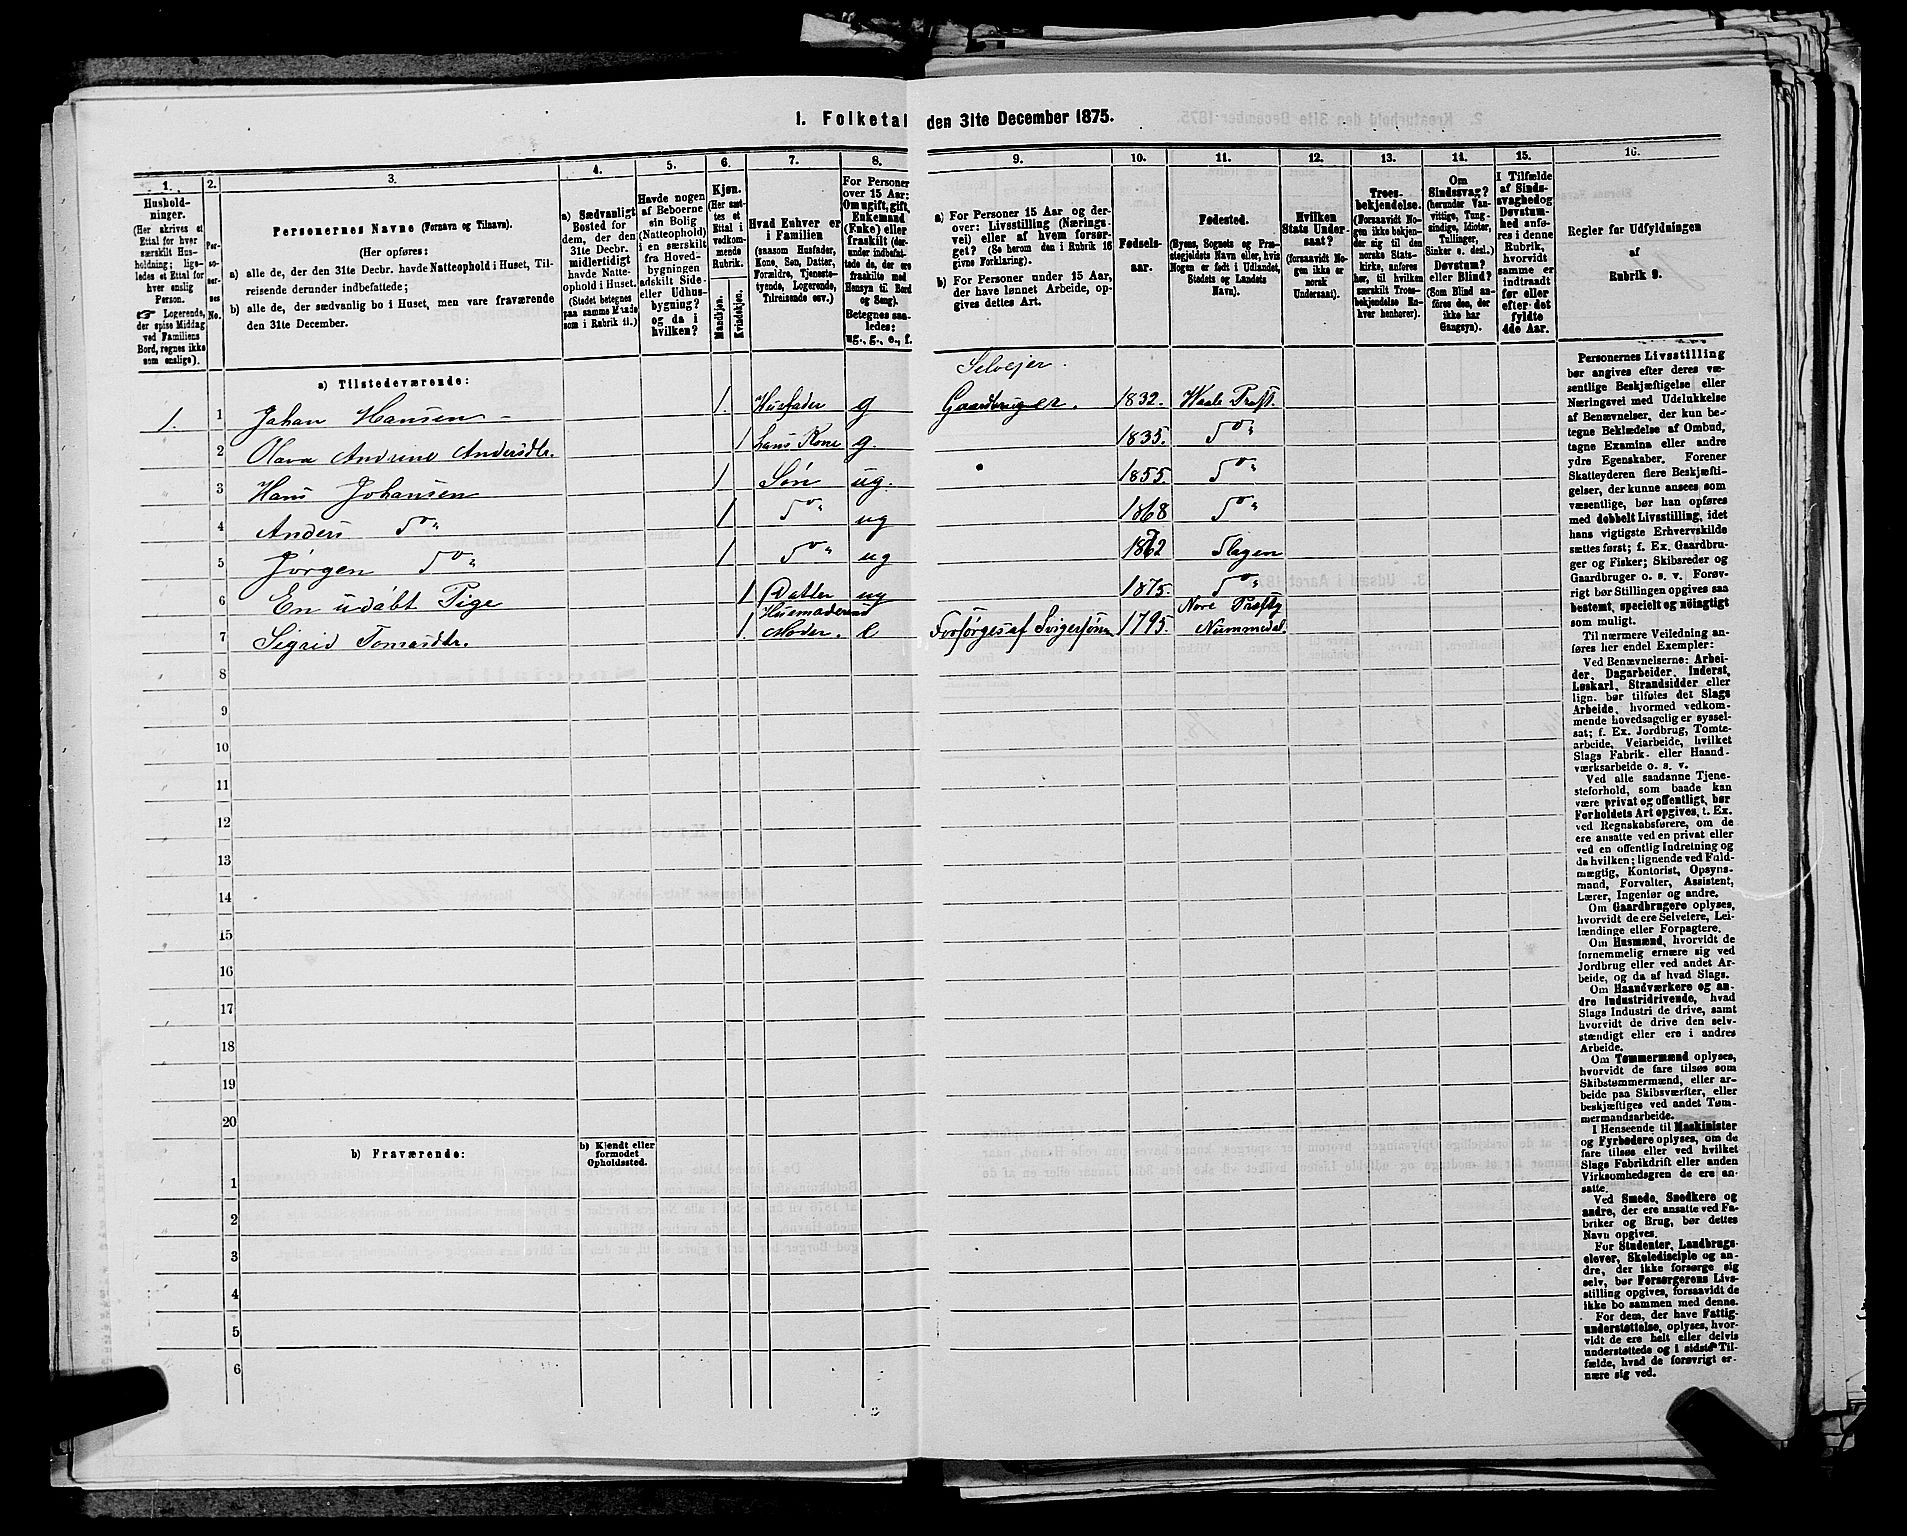 1. Folketal den 31te December 1875.
1.
Husholdninger.
(Her skrives et
Ettal for hver
særskilt Husholdning;
ligeledes et Ettal for
hver enslig
Person.
☞ Logerende,
der spise Middag
ved Familiens
Bord, regnes ikke
som enslige).
2.
Personernes No.
3.
Personernes Navne (Fornavn og Tilnavn).
(Her opføres:
a) alle de, der den 31te Decbr. havde Natteophold i Huset, Tilreisende derunder indbefattede;
b) alle de, der sædvanlig bo i Huset, men vare fraværende
den 31te December.
4.
a) Sædvanligt
Bosted for
dem, der den
31te Decbr.
midlertidigt
havde Natteophold i Huset.
(Stedet betegnes
paa samme Maade
som i Rubrik 11.)
5.
Havde nogen
af Beboerne
sin Bolig
(Natteophold)
i en særskilt
fra Hovedbygningen
adskilt Side-
eller Udhusbygning?
og da i
hvilken?
6.
Kjøn.
(Her sættes et
Ettal i
vedkommende
Rubrik.
Mandkjøn.
Kvindekjøn.
7.
Hvad Enhver er
i Familien
(saasom Husfader,
Kone, Søn, Datter,
Forældre, Tjenestetyende, Logerende,
Tilreisende osv.)
8.
For Personer
over 15 Aar:
Om ugift, gift,
Enkemand
(Enke) eller
fraskilt (derunder indbefattede de, der ere
fraskilte med
Hensyn til Bord
og Seng).
Betegnes saaledes:
ug., g., e., f.
9.
a) For Personer 15 Aar og derover: Livsstilling (Næringsvei) eller af hvem forsørget? (Se herom den i Rubrik 16
givne Forklaring).
b) For Personer under 15 Aar,
der have lønnet Arbeide, opgives dettes Art.
10.
Fødselsaar.
11.
Fødested.
(Byens, Sognets og Præstegjeldets Navn eller, hvis
Nogen er født i Udlandet,
Stedets og Landets
Navn).
12.
Hvilken
Stats Undersaat?
(forsaavidt Nogen ikke er
norsk
Undersaat).
13.
Troesbekjendelse.
(Forsaavidt Nogen ikke bekjender sig til den
norske Statskirke, anføres
her, til hvilken
særskilt Troesbekjendelse Enhver henhører).
14.
Om
Sindssvag?
(herunder Vanvittige, Tungsindige, Idioter,
Tullinger,
Sinker o. desl.).
Døvstum?
eller Blind?
(Som Blind anføres den, der
ikke har
Gangsyn).
15.
I Tilfælde
af Sindssvaghed og
Døvstumhed anføres i denne
Rubrik,
hvorvidt
samme er
indtraadt
før eller
efter det
fyldte
4de Aar.
16.
Regler for Udfyldningen
af
Rubrik 9.
a) Tilstedeværende:
Selveier.
1. 1 Johan Hansen – 1. Husfader g Gaardbruger. 1832. Waale Præst.
2 Olava Andrine Andersdtr. 1 hans Kone g. 1835. Do„
3 Hans Johansen 1 Søn ug. 1855. Do„
4 Anders Do„ 1 Do„ ug 1868 Do„
5 Jørgen Do„ 1 Do„ ug Slagen
6 En udøbt Pige 1 Datter ug 1875. Do„
7 Sigrid Tomasdtr. 1. Husmoderens Moder. e Forsørges af Svigersønn 1795. Nore Præstg Nummedal.
8
9
10
11
12
13
14
15
16
17
18
19
20
b) Fraværende:
b) Kjendt eller
formodet
Opholdssted.
1
2
3
4
5
6
Personernes Livsstilling
bør angives efter deres væsentlige Beskjæftigelse eller
Næringsvei med Udelukkelse
af Benævnelser, der kun betegne Beklædelse af Ombud,
tagne Examina eller andre
ydre Egenskaber. Forener
Skatteyderen flere Beskjæftigelser, der kunne ansees som
væsentlige, bør han opføres
med dobbelt Livsstilling, idet
hans vigtigste Erhvervskilde
sættes først; f. Ex. Gaardbruger og Fisker; Skibsreder og
Gaardbruger o. s. v. Forøvrigt bør Stillingen opgives saa
bestemt, specielt og nöiagtigt
som muligt.
Til nærmere Veiledning anføres her endel Exempler:
Ved Benævnelserne: Arbeider, Dagarbeider, Inderst,
Løskarl, Strandsidder eller
lign. bør tilføies det Slags
Arbeide, hvormed vedkommende hovedsagelig er sysselsat; f. Ex. Jordbrug, Tomtearbeide, Veiarbeide, hvilket
Slags Fabrik- eller Haandværksarbeide o. s. v.
Ved alle saadanne Tjenesteforhold, som baade kan
være privat og offentligt, bør
Forholdets Art opgives, f. Ex.
ved Regnskabsførere, om de
ere ansatte ved en privat eller
ved en offentlig Indretning og
da hvilken; lignende ved Fuldmægtig, Kontorist, Opsynsmand, Forvalter, Assistent,
Lærer, Ingeniør og andre.
Om Gaardbrugere oplyses,
hvorvidt de ere Selveiere, Leilændinge eller Forpagtere.
Om Husmænd, hvorvidt de
fornemmelig ernære sig ved
Jordbrug eller ved andet Arbeide, og da af hvad Slags.
Om Haandværkere og andre Industridrivende, hvad
Slags Industri de drive, samt
hvorvidt de drive den selvstændigt eller ere i andres
Arbeide.
Om Tømmermænd oplyses,
hvorvidt de fare tilsøs som
Skibstømmermænd, eller arbeide paa Skibsværfter, eller
beskjæftiges ved andet Tømmermandsarbeide.
I Henseende til Maskinister
og Fyrbødere oplyses, om de
fare tilsøs eller ved hvilket
Slags Fabrikdrift eller anden
Virksomhedsgren de ere ansatte.
Ved Smede, Snedkere og
andre, der ere ansatte ved Fabriker og Brug, bør dettes
Navn opgives.
For Studenter, Landbrugselever, Skoledisciple og andre, der ikke forsørge sig
selv, bør Forsørgerens Livsstilling opgives, forsaavidt de
ikke bo sammen med denne.
For dem, der have Fattigunderstøttelse, oplyses, hvorvidt de ere helt eller delvis
understøttede og i sidste Tilfælde, hvad de forøvrigt ernære sig ved.